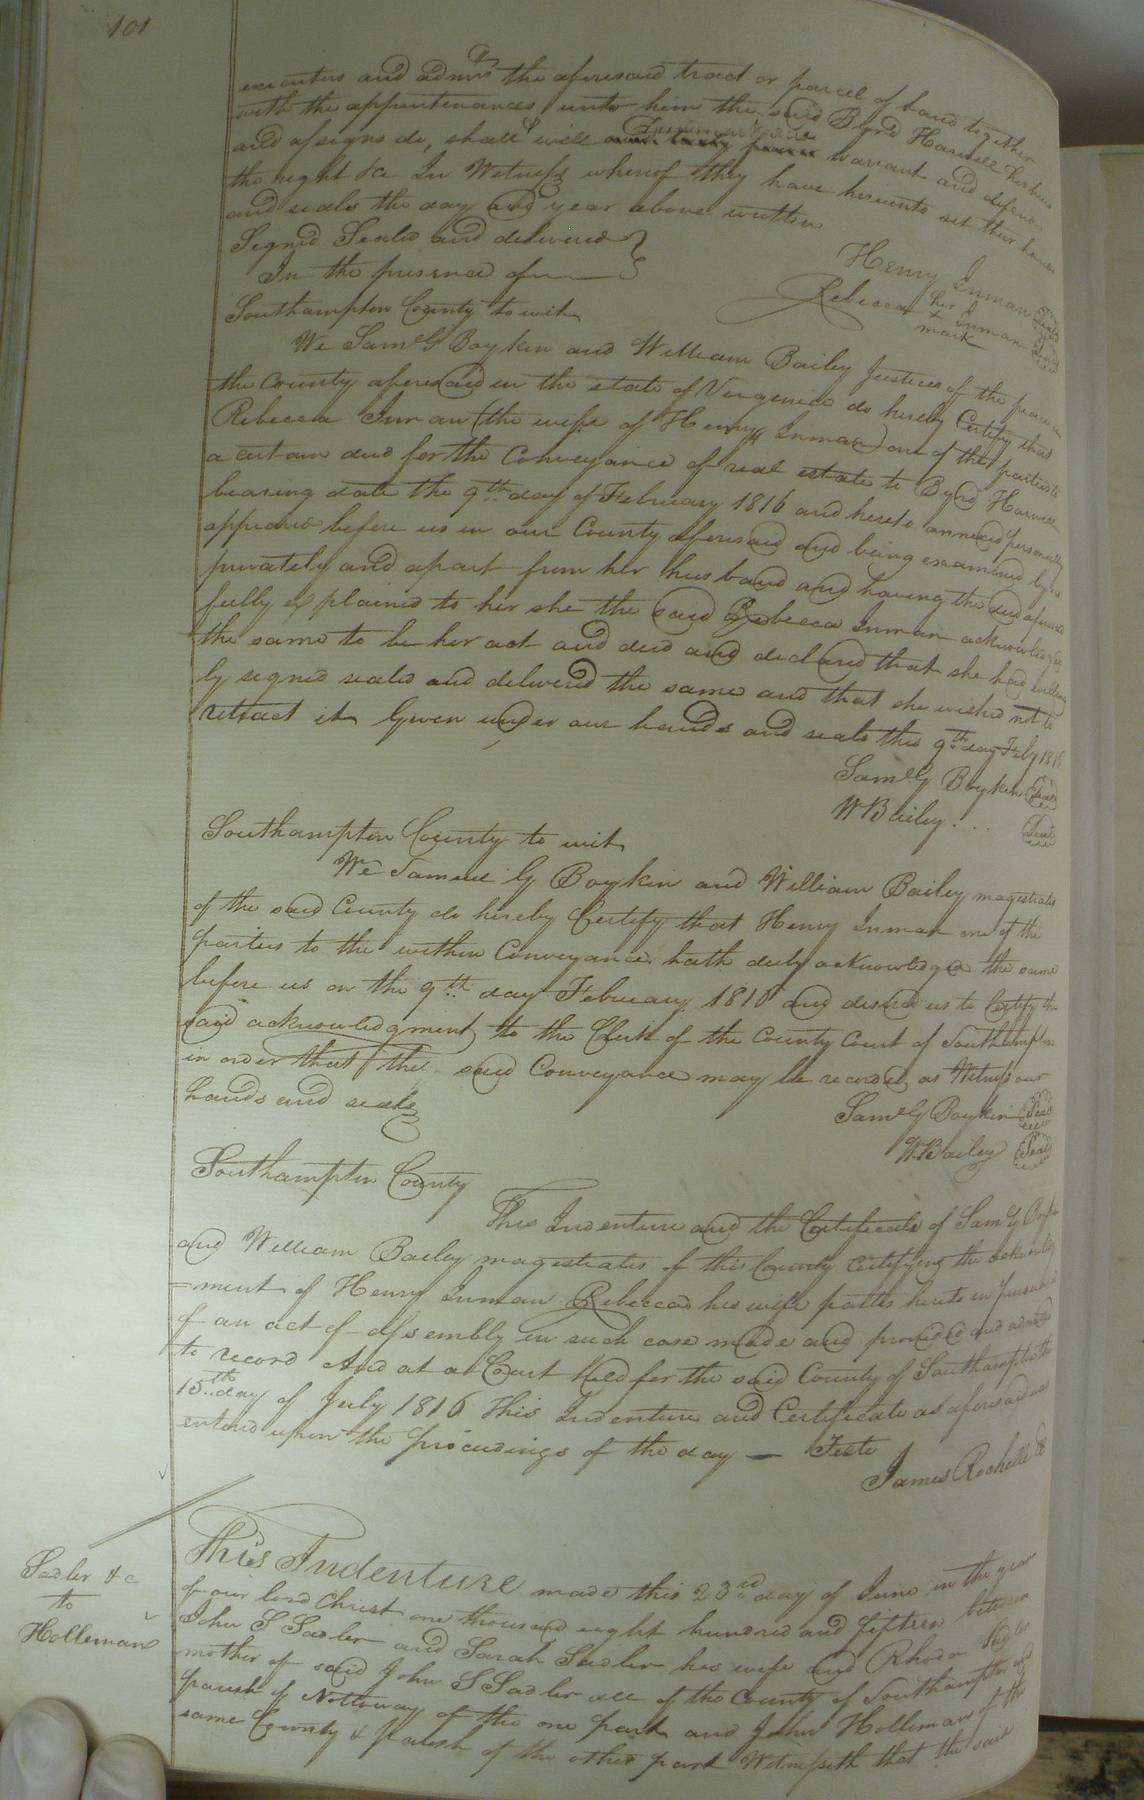 101
executors and admrs the aforesaid tract or parcel of land together
with the appurtenances unto him the said Byrd Harwell his heirs
and assigns do, shall & will warrant and defend
the right &c In Witness whereof they have hereunto set their hands
and seals the day and year above written
Signed Sealed and delivered
In the presence of
Henry Inman Seal
Rebecca her + mark Inman Seal
Southampton County to wit
We Saml G Boykin and William Bailey Justices of the peace in
the County aforesaid in the state of Virginia do hereby Certify that
Rebecca Inman (the wife of Henry Inman) one of the parties to
a certain deed for the Conveyance of real estate to Byrd Harwell
bearing date the 9th day of February 1816 and hereto annexed personally
appeared before us in our County aforesaid and being examined by us
privately and apart from her husband and having the deed aforesaid
fully explained to her she the said Rebecca Inman acknowledged
the same to be her act and deed and declared that she had willing
ly signed sealed and delivered the same and that she wished not to
retract it Given under our hands and seals this 9th day Feby 1816
Saml G Boykin Seal
W Bailey . . . Seal
Southampton County to wit
We Samuel G Boykin and William Bailey magistrates
of the said County do hereby Certify that Henry Inman one of the
parties to the within Conveyance hath duly acknowledged the same
before us on the 9th day February 1816 and desired us to Certify the
said acknowledgment to the Clerk of the County Court of Southampton
in order that the said Conveyance may be recorded as Witness our
hands and seals
Saml G Boykin Seal
W. Bailey Seal
Southampton County
This Indenture and the Certificate of Sam G Boykin
and William Bailey magistrates of this County certifying the acknowledg
=ment of Henry Inman Rebecca his wife parties hereto in pursuance
of an act of assembly in such case made and provided and admitted
to record And at a Court Held for the said County of Southampton the
15th day of July 1816 This Indenture and Certificate as aforesaid was
entered upon the proceedings of the day — Teste
James Rochelle
Sadler &c
to
Holleman
This Indenture made this 23rd day of June in the year
of our lord Christ one thousand eight hundred and fifteen between
John S Sadler and Sarah Sadler his wife and Rhoda Sadler
mother of said John S Sadler all of the County of Southampton and
parish of Nottoway of the one part and John Holliman of the
same County & parish of the other part Witnesseth that the said